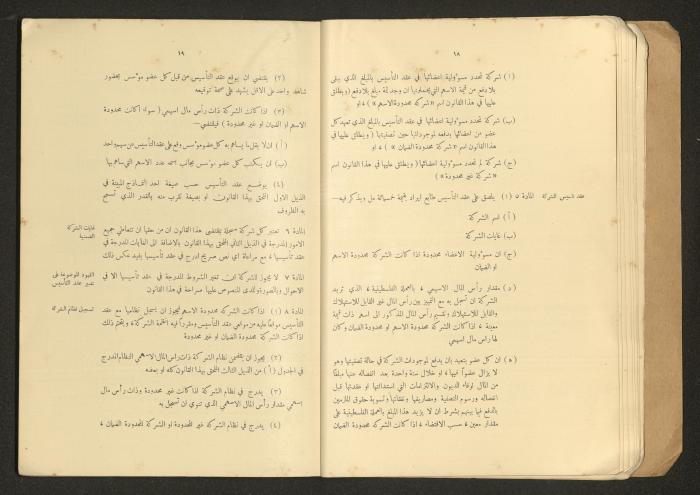 ١٨
(ا) شركة تحدد مسؤولية اعضائها في عقد التأسيس بالمبلغ الذي يبقى
بلا دفع من قيمة الاسهم التي يحملونها ان وجد ثمة مبلغ بلا دفع (ويطلق
عليها في هذا القانون اسم « شركة محدودة الاسهم » ) ، او
(ب) شركة تحدد مسؤولية اعضائها في عقد التأسيس بالمبلغ الذي تعهد كل
عضو من اعضائها بدفعه لموجوداتها حين تصفيتها ( ويطلق عليها في هذا
القانون اسم « شركة محدودة الضمان » ) ، او
(ج) شركة لم تحدد مسؤولية اعضائها ( ويطلق عليها في هذا القانون اسم
« شركة غير محدودة » )
عقد تأسيس الشركة
المادة ٥ (١) يلصق على عقد التأسيس طابع ايراد بقيمة خمسمائة مل ويذكر فيه—
(أ) اسم الشركة
(ب) غايات الشركة
(ج) ان مسؤولية الاعضاء محدودة اذا كانت الشركة محدودة الاسهم
او الضمان
(د) مقدار رأس المال الاسهمي ، بالعملة الفلسطينية ، الذي تريد
الشركة ان تسجل به مع التمييز بين رأس المال غير القابل للاستهلاك
والقابل للاستهلاك وتقسيم رأس المال المذكور الى اسهم ذات قيمة
معينة ، اذا كانت الشركة محدودة الاسهم او محدودة الضمان وكان
لها رأس مال اسهمي
(ه) ان كل عضو يتعهد بان يدفع لموجودات الشركة في حالة تصفيتها وهو
لا يزال عضواً فيها ، او خلال سنة واحدة بعد انفصاله عنها مبلغاً
من المال لوفاء الديون والالتزامات التي استدانتها او عقدتها قبل
انفصاله ورسوم التصفية ومصاريفها ونفقاتها وتسوية حقوق الملزمين
بالدفع فيما بينهم بشرط ان لا يزيد هذا المبلغ بالعملة الفلسطينية على
مقدار معين ، حسب الاقتضاء ، اذا كانت الشركة محدودة الضمان
١٩
(٢) يقتضي ان يوقع عقد التأسيس من قبل كل عضو مؤسس بحضور
شاهد واحد على الاقل يشهد على صحة توقيعه
(٣) اذا كانت الشركة ذات رأس مال اسهمي ( سواء اكانت محدودة
الاسهم او الضمان او غير محدودة ) فيقتضي—
(أ) ان لا يقل ما يساهم به كل عضو مؤسس وقع على عقد التأسيس عن سهم واحد
(ب) ان يكتب كل عضو مؤسس بجانب اسمه عدد الاسهم التي يساهم بها
(٤) يوضع عقد التأسيس حسب صيغة احد النماذج المبينة في
الذيل الاول الملحق بهذا القانون او بصيغة تقرب منه بالقدر الذي تسمح
به الظروف
غايات الشركة
الضمنية
المادة ٦ تعتبر كل شركة مسجلة بمقتضى هذا القانون ان من حقها ان تتعاطى جميع
الامور المدرجة في الذيل الثالث الملحق بهذا القانون بالاضافة الى الغايات المدرجة في
عقد تأسيسها ، مع مراعاة اي نص صريح ادرج في عقد تأسيسها يفيد عكس ذلك
القيود الموضوعة على
تغيير عقد التأسيس
المادة ٧ لا يجوز للشركة ان تغير الشروط المدرجة في عقد تأسيسها الا في
الاحوال وبالصورة والمدى المنصوص عليها صراحة في هذا القانون
تسجيل نظام الشركة
المادة ٨ (١) اذا كانت الشركة محدودة الاسهم فيجوز ان تسجل نظامها مع عقد
التأسيس موقعاً عليه من موقعي عقد التأسيس ومقرراً فيه انظمة الشركة ، ويتحتم ذلك
اذا كانت الشركة محدودة الضمان او غير محدودة
(٢) يجوز ان يقتضي نظام الشركة ذات رأس المال الاسهمي النظام المدرج
في الجدول (أ) من الذيل الثالث الملحق بهذا القانون كله او بعضه
(٣) يدرج في نظام الشركة اذا كانت غير محدودة وذات رأس مال
اسهمي مقدار رأس المال الاسهمي الذي تنوي ان تسجل به
(٤) يدرج في نظام الشركة غير المحدودة او الشركة المحدودة الضمان ،